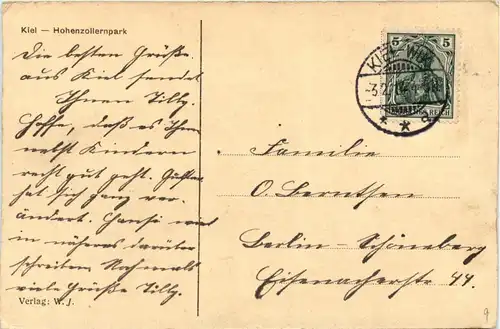 Kiel — Hohenzollernpark
Die besten Grüße
aus Kiel sendet
Ihnen Tilly.
Hoffe, daß es Ihnen
nebst Kindern
recht gut geht. Gustav
hat sich ganz ver-
ändert. Hansi wird
in näheres darüber
schreiben. Nochmals
viele Grüße Tilly.
Verlag: W. J.
5 5
REICH
KIEL-WIK
-3.2.
Familie
O. Berntsen
Berlin-Schöneberg
Eisenacherstr 44.
9